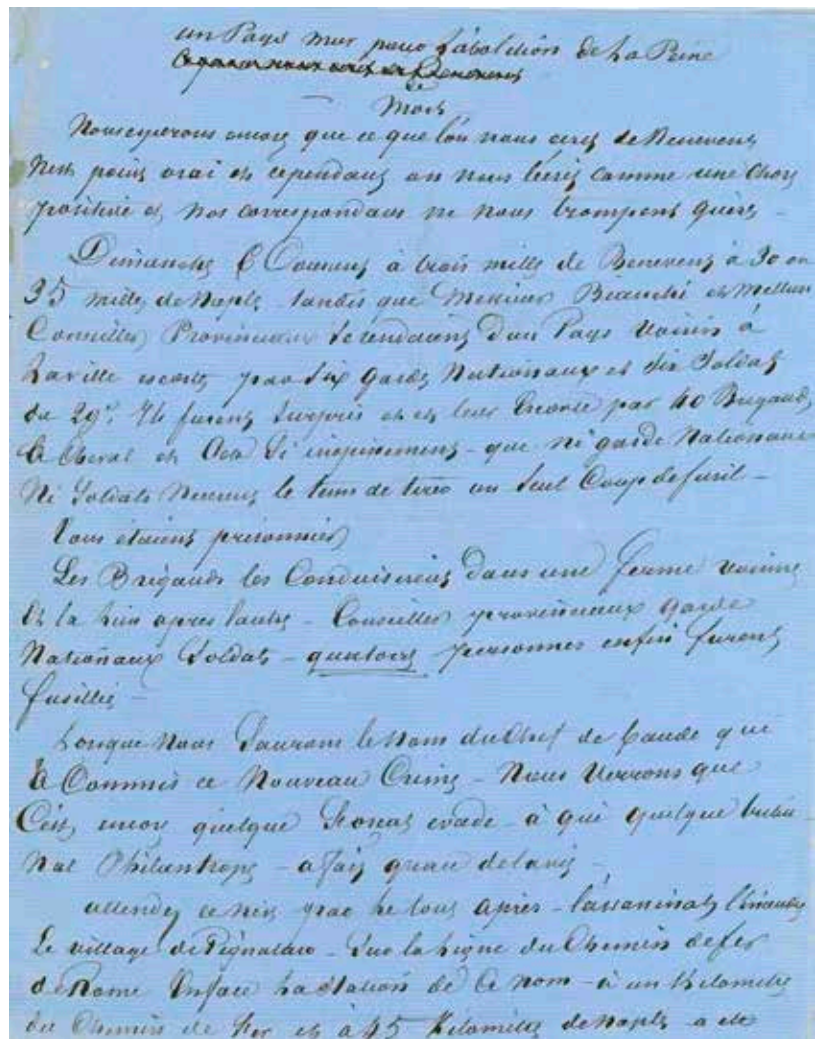 un Pays mur pour l'abolition de La Peine
de
Mort
Nous esperons encore que ce que l'on nous ecrit de Benevent
N'est point vrai et cependant on nous l'ecrit comme une chose
positive et nos correspondans ne nous trompent guère –
Dimanche 6 Courant à trois milles de Benevent à 30 ou
35 milles de Naples tandis que Messieurs et
Conseillers Provinciaux se rendaient d'un Pays voisin à
La ville escortés par six gardes Nationaux et six Soldats
du 29e. Ils furent surpris et leur Escorte par 40 Brigands
à Cheval et Cela si inopinement – que ni garde Nationaux
Ni Soldats n'eurent le tems de tirer un seul Coup de fusil –
Tous étaient prisonniers
Les Brigands les Conduisirent dans une ferme voisine
Et la l'un apres l'autre – Conseillers provinciaux garde
Nationaux Soldats – quatorze personnes enfin furent
fusillés –
Lorsque Nous Saurons le nom du Chef de bande qui
à Commis ce Nouveau Crime – Nous Verrons que
C'est encore quelque evadé – à qui quelque tribu-
nal Philantrope – a fait de la vie –
attendez ce n'est pas le tout après – l'assassinat l'incendie
Le village de Pignataro – Sur la ligne du Chemin de fer
de Rome En face La Station de Ce nom – à un Kilometre
du Chemin de Fer et à 45 Kilometres de Naples a été